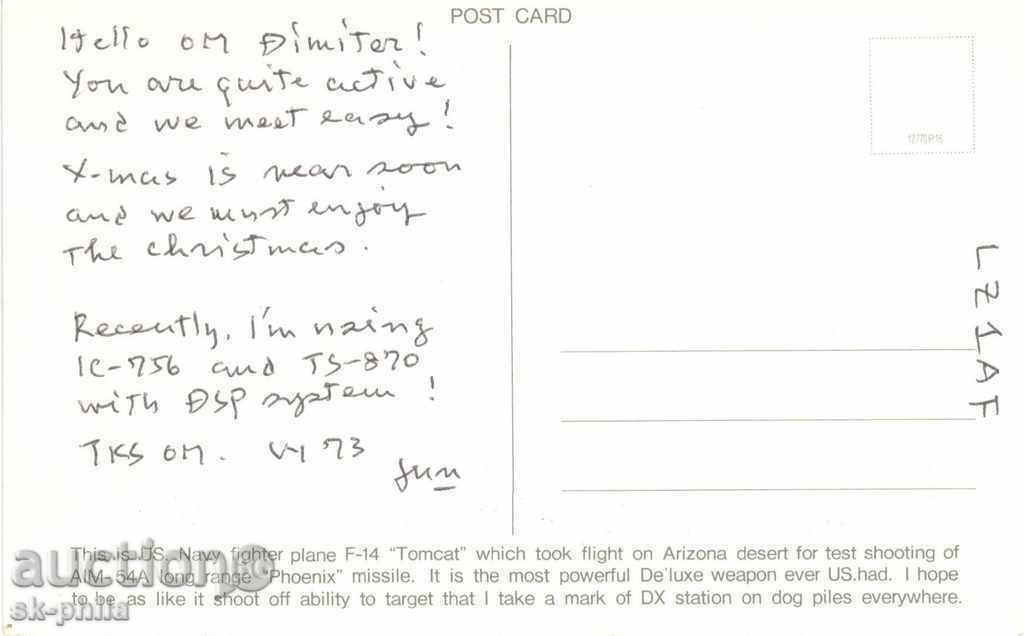 POST CARD
Hello OM Dimiter!
You are quite active
and we meet easy!
X-mas is near soon
and we must enjoy
the christmas.
Recently, I'm using
IC-756 and TS-870
with DSP system!
TKS OM. VY 73
Jun
12770R16
LZ1AF
This is US. Navy fighter plane F-14 "Tomcat" which took flight on Arizona desert for test shooting of
AIM-54A long range "Phoenix" missile. It is the most powerful De'luxe weapon ever US.had. I hope
to be as like it shoot off ability to target that I take a mark of DX station on dog piles everywhere.
auction
sk-phila